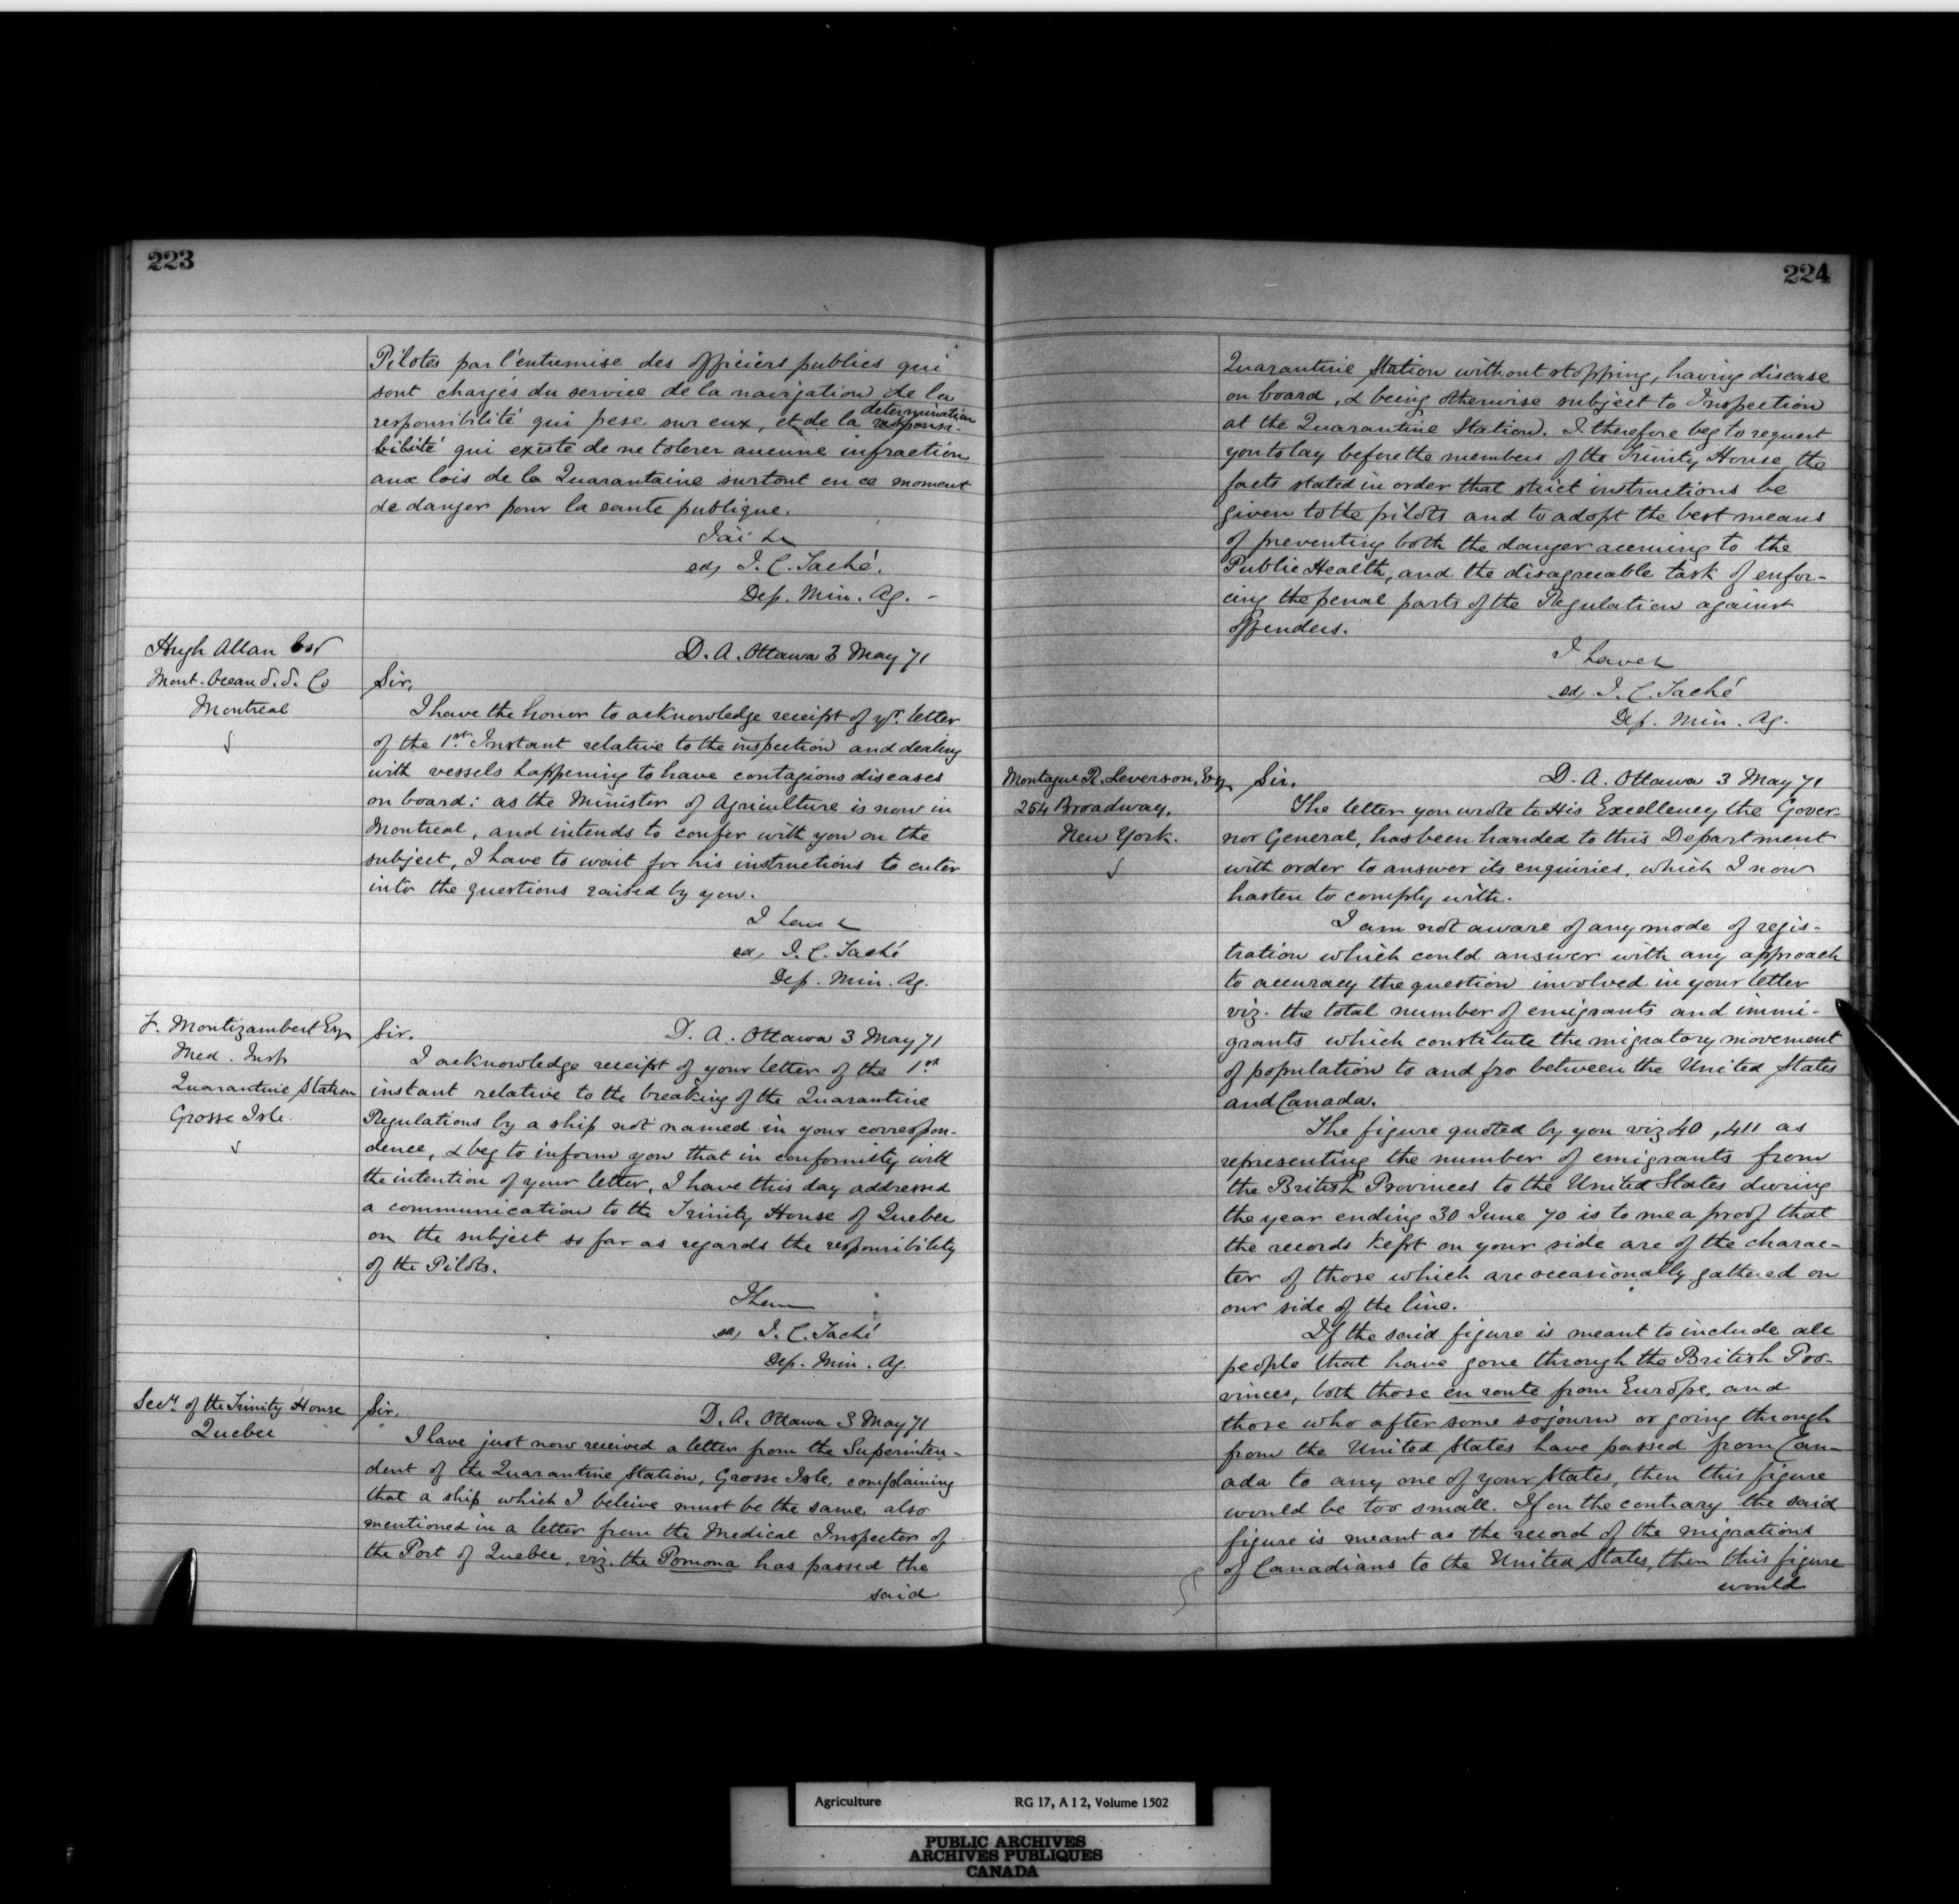 223
Pilotes par l'entremise des officiers publics qui
sont chargés du service de la navigation de la
responsibilité qui pese sur eux, et de la determination
response-
bilité qui existe de ne tolerer aucune infraction
aux lois de la Quarantaine surtout en ce moment
de danger pour la sante publique.
J'ai &c
sd, J. C. Taché.
Dep. Min. Ag. -
Hugh Allan Esq
Mont. Ocean S. S. Co
Montreal
D. A. Ottawa 3 May 71
Sir,
I have the honor to acknowledge receipt of yr. letter
of the 1st. Instant relative to the inspection and dealing
with vessels happening to have contagious diseases
on board: as the Minister of Agriculture is now in
Montreal, and intends to confer with you on the
subject, I have to wait for his instructions to enter
into the questions raised by you.
I have &c
sd, J. C. Taché
Dep. Min. Ag.
F. Montizambert Esq
Med. Insp
Quarantine Station
Grosse Isle.
Sir. D. A. Ottawa 3 May 71
I acknowledge receipt of your letter of the 1st
instant relative to the breaking of the Quarantine
Regulations by a ship not named in your correspon-
dence, & beg to inform you that in conformity with
the intention of your letter, I have this day addressed
a communication to the Trinity House of Quebec
on the subject so far as regards the responsibility
of the Pilots.
I have
sd, J. C. Taché
Dep. Min. Ag.
Secy. of the Trinity House
Quebec
Sir. D. A. Ottawa 3 May 71
I have just now received a letter from the Superinten-
dent of the Quarantine Station, Grosse Isle, complaining
that a ship which I beleive must be the same also
mentioned in a letter from the Medical Inspector of
the Port of Quebec, viz. the Pomona has passed the
said
224
Quarantine Station without stopping, having disease
on board, & being otherwise subject to Inspection
at the Quarantine Station. I therefore beg to request
you to lay before the members of the Trinity House, the
facts stated in order that strict instructions be
given to the pilots and to adopt the best means
of preventing both the danger accruing to the
Public Health, and the disagreeable task of enfor-
cing the penal parts of the Regulation against
offenders.
I have &c
sd, J. C. Taché
Dep. Min. Ag.
Montague R. Leverson, Esq
254 Broadway,
New York.
Sir. D. A. Ottawa 3 May 71
The letter you wrote to His Excellency the Gover-
nor General, has been handed to this Department
with order to answer its enquiries, which I now
hasten to comply with.
I am not aware of any mode of regis-
tration which could answer with any approach
to accuracy the question involved in your letter
viz. the total number of emigrants and immi-
grants which constitute the migratory movement
of population to and fro between the United States
and Canada.
The figure quoted by you viz 40,411 as
representing the number of emigrants from
the British Provinces to the United States during
the year ending 30 June 70 is to me a proof that
the records kept on your side are of the charac-
ter of those which are occasionally gathered on
our side of the line.
If the said figure is meant to include all
people that have gone through the British Pro-
vinces, both those en route from Europe, and
those who after some sojourn or going through
from the United States have passed from Can-
ada to any one of your States, then this figure
would be too small. If on the contrary the said
figure is meant as the record of the migrations
of Canadians to the United States, then this figure
would
Agriculture RG 17, A I 2, Volume 1502
PUBLIC ARCHIVES
ARCHIVES PUBLIQUES
CANADA